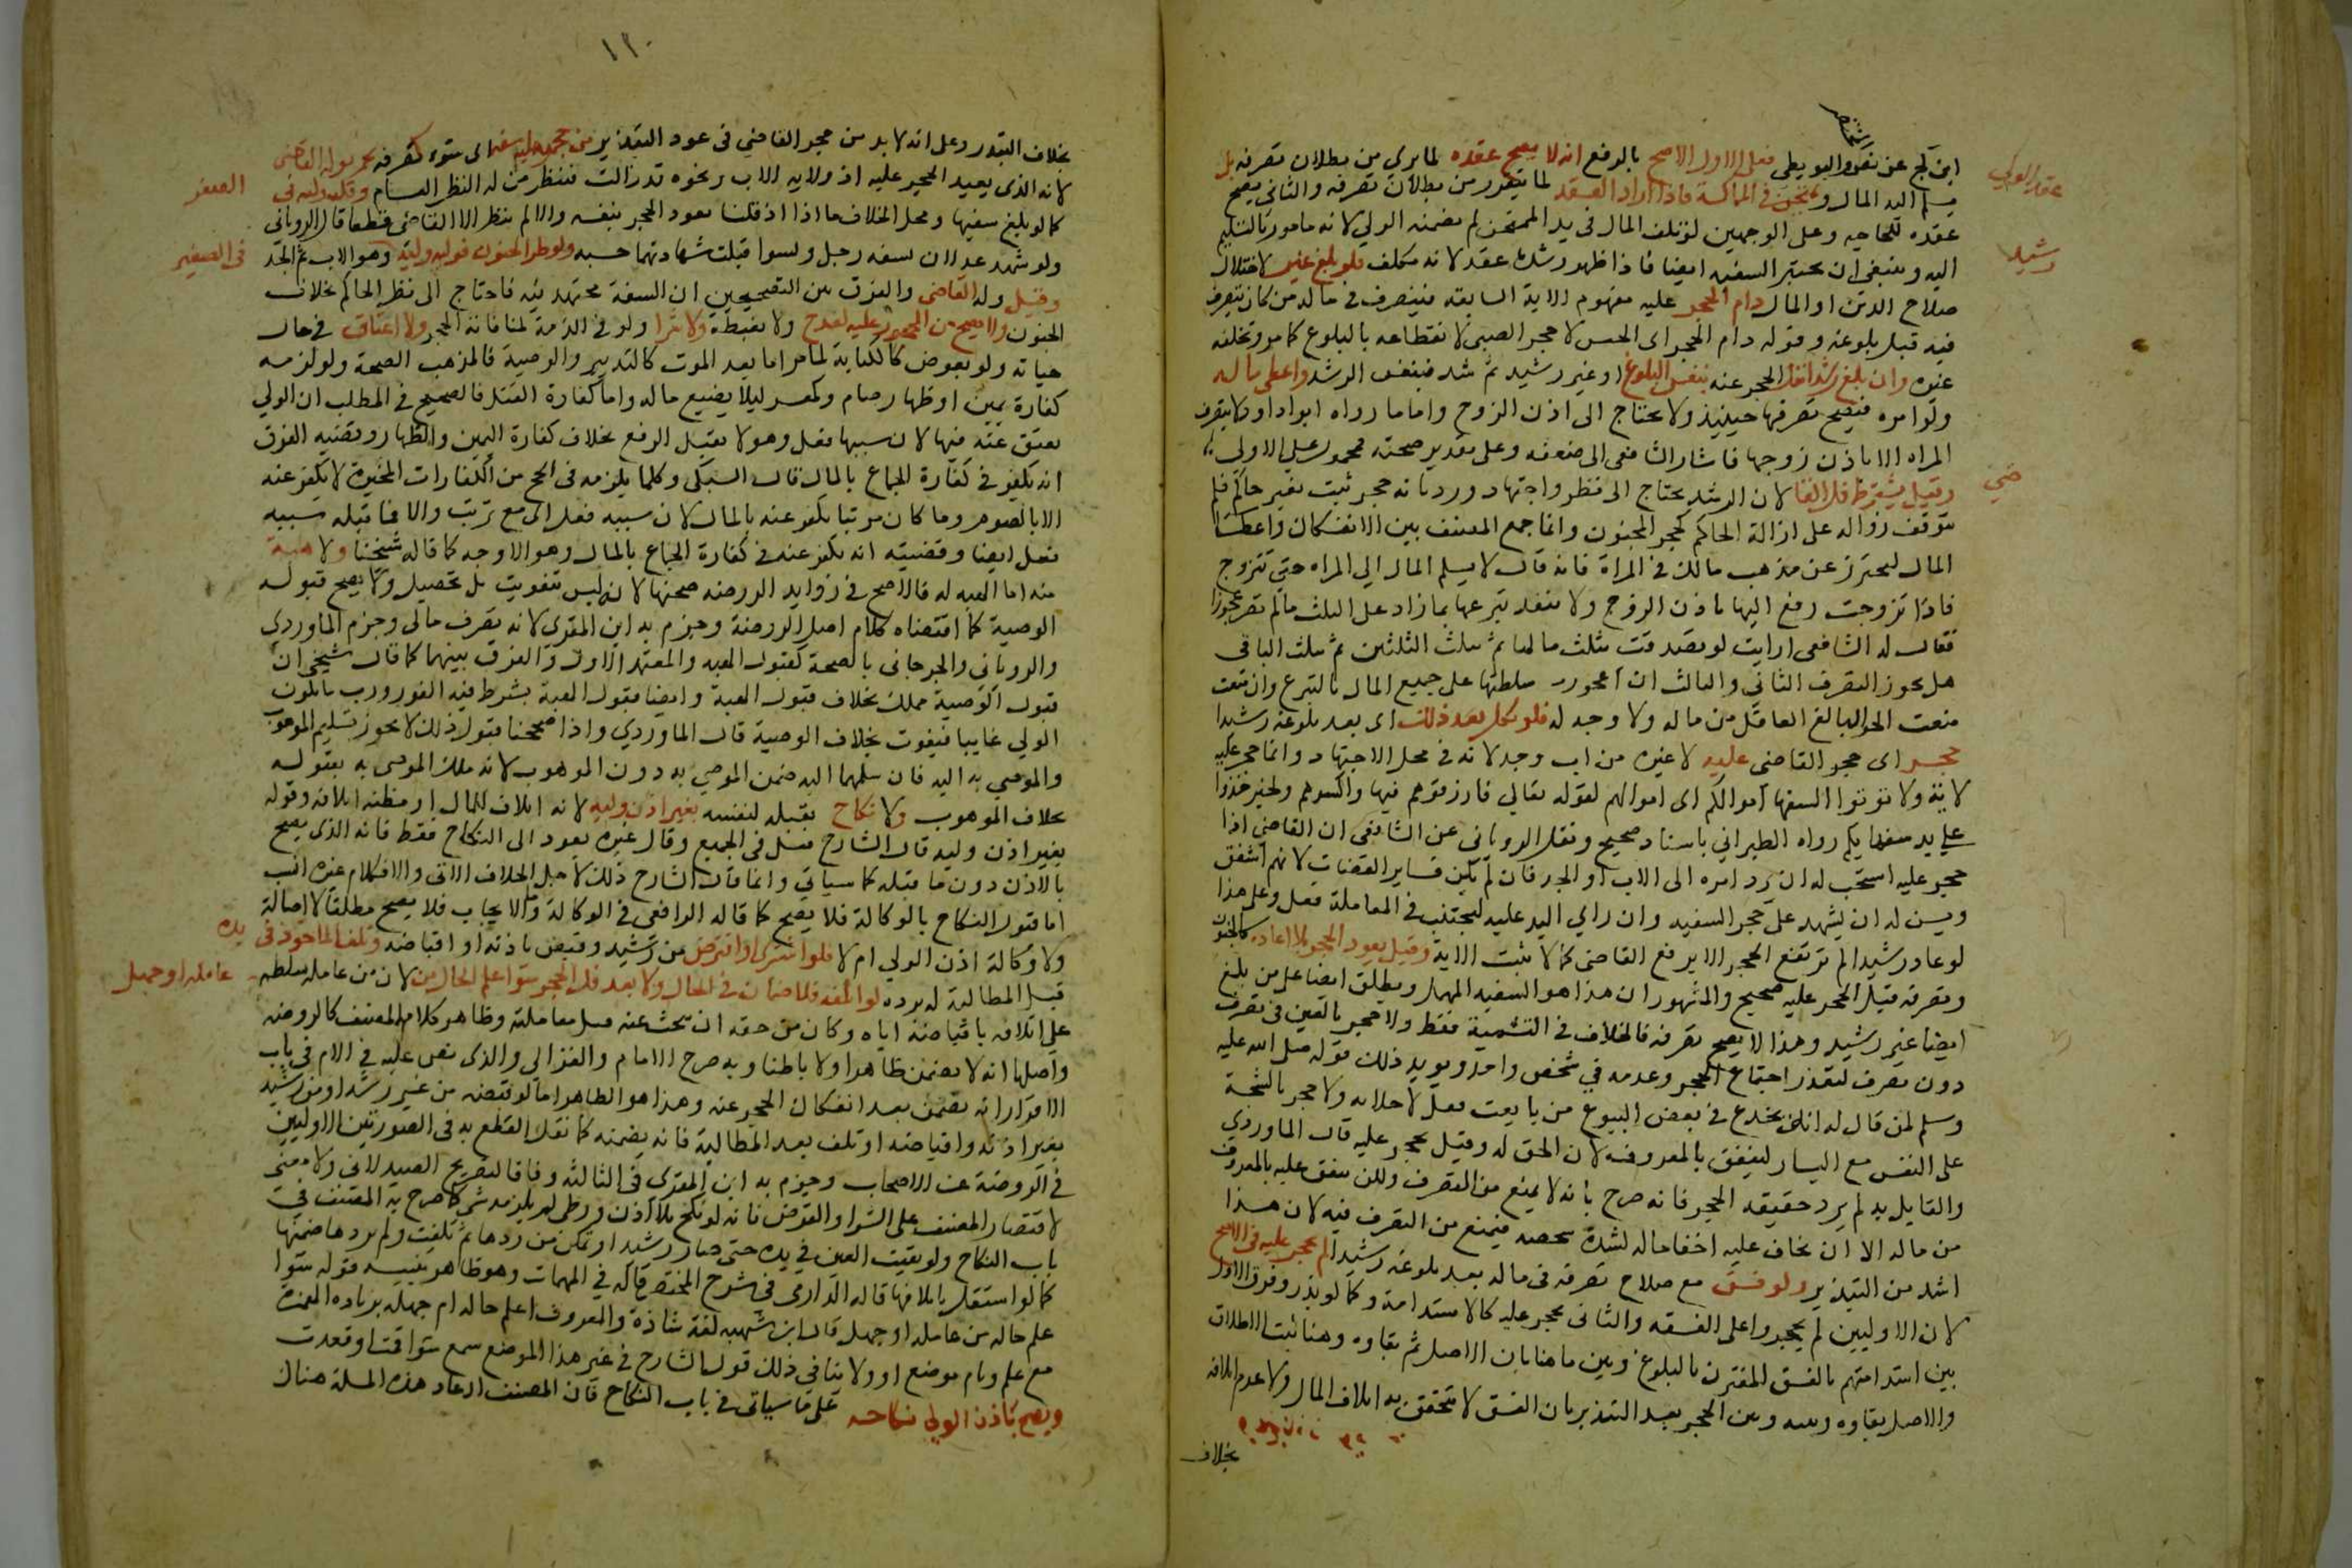 ابن كج عن نص البويطي فعلى الاول الاصح بالرفع انه لا يصح عقده لما يري من بطلان تصرفه بل
عقد الولي
يسلم اليه المال ويمتحن في المماكسة فاذا اراد العقد لما يتقرر من بطلان تصرفه والثاني يصح
عقده للحاجه وعلى الوجهين لو تلف المال في يد الممتحن لم يضمنه الولي لانه مامور بالتسليم
اليه وينبغي ان يختبر السفيه ايضا فاذا ظهر رشده عقد لانه مكلف فلو بلغ غير لاختلال
رشيد
صلاح الدين او المال دام الحجر عليه مفهوم الاية السابقه فيتصرف في ماله من كان يتصرف
فيه قبل بلوغه وقوله دام الحجر اى الجنس لا حجر الصبى لانقطاعه بالبلوغ كما مر ويخلفه
غيره وان بلغ رشيدا انفك الحجر عنه بنفس البلوغ او غير رشيد ثم رشد فبنفس الرشد واعطى ماله
ولو امره فيصح تصرفها حينيذ ولا يحتاج الى اذن الزوج واما ما رواه ابو داود لا تتصرف
المراه الا باذن زوجها فاشار الشافعى الى ضعفه وعلى تقدير صحته محمول على الاولى
وقيل يشترط فك القا لان الرشد يحتاج الى نظر واجتهاد ورد بانه حجر ثبت بغير حاكم فلم
ضي
يتوقف زواله على ازالة الحاكم كحجر المجنون وانما جمع المصنف بين الانفكاك واعطا
المال ليحترز عن مذهب مالك في المراة فانه قال لا يسلم المال الي المراه حتي تتزوج
فاذا تزوجت دفع اليها باذن الزوج ولا ينفذ تبرعها بما زاد على الثلث ما لم تصر عجوزا
فقال له الشافعي ارايت لو تصدقت بثلث مالها ثم بثلث الثلثين ثم بثلث الباقى
هل يجوز التصرف الثاني والثالث ان اجوزت سلطتها على جميع المال بالتبرع وان منعت
منعت الحر البالغ العاقل من ماله ولا وجه له فلو بذر بعد ذلك اى بعد بلوغه رشيدا
حجر اى حجر القاضى عليه لا غيره من اب وجد لانه في محل الاجتهاد وانما حجر عليه
لاية ولا توتوا السفها اموالكم اى اموالهم لقوله تعالي فارزقوهم فيها واكسوهم ولخبر خذوا
على يد سفهايكم رواه الطبراني باسناد صحيح ونقل الروياني عن الشافعى ان القاضي اذا
حجر عليه استحب له ان يرد امره الى الاب او الجد فان لم يكن فساير العصبات لانهم اشفق
ويسن له ان يشهد على حجر السفيه وان راي النداء عليه ليجتنب في المعاملة فعل وعلى هذا
لو عاد رشيدا لم يرتفع الحجر الا برفع القاضى كما لا يثبت الا به وقيل يعود الحجر بلا اعاده كالجنون
وتصرفه قبل الحجر عليه صحيح والمشهور ان هذا هو السفيه المهمل ويطلق ايضا على من بلغ
ايضا غير رشيد وهذا لا يصح تصرفه فالخلاف في التسمية فقط ولا حجر بالغبن فى تصرف
دون تصرف لتعذر اجتماع الحجر وعدمه في شخص واحد ويويد ذلك قوله صلى الله عليه
وسلم لمن قال له انك تخدع في بعض البيوع من بايعت فقل لا خلابه ولا حجر بالشحة
على النفس مع اليسار لينفق بالمعروف لان الحق له وقيل يحجر عليه قال الماوردي
والقايل به لم يرد حقيقه الحجر فانه صرح بانه لا يمنع من التصرف ولكن ينفق عليه بالمعروف
من ماله الا ان يخاف عليه اخفا ماله لشدة شحه فيمنع من التصرف فيه لان هذا
اشد من التبذير ولو فسق مع صلاح تصرفه فى ماله بعد بلوغه رشيدا لم يحجر عليه فى الاصح
لان الاوليين لم يحجروا على الفسقه والثاني يحجر عليه كالاستدامة وكما لو بذر وفرق الاول
بين استدامتهم بالفسق المقترن بالبلوغ وبين ما هنا بان الاصل ثم بقاوه وهنا ثبت الاطلاق
والاصل بقاوه وبينه وبين الحجر بعد التبذير بان الفسق لا يتحقق به اتلاف المال ولا عدم اتلافه
بخلاف
١٢٠
بخلاف التبذير وعلى انه لا بد من حجر القاضي فى عود التبذير من حجر عليه لسفه اى سوء تصرفه يحجر بوليه القاضى
لانه الذى يعيد الحجر عليه اذ ولايه الاب ونحوه قد زالت فينظر من له النظر العام وقيل وليه فى
الصغر
كما لو بلغ سفيها ومحل الخلاف ما اذا قلنا يعود الحجر بنفسه والا لم ينظر الا القاضى قطعا قال الروياني
ولو شهد عدلان بسفه رجل وفسرا قبلت شهادتهما حسبه ولو طرا الجنون فوليه وليه وهو الاب ثم الجد
فى الصغير
وقيل وليه القاضى والفرق بين التصحيحين ان السفه مجتهد فيه فاحتاج الى نظر الحاكم بخلاف
الجنون ولا يصح من المحجور عليه لسفه بيع ولا بغبطه ولا شرا ولو في الذمة لمنافاته الحجر ولا اعتاق في حال
حياته ولو بعوض كالكتابة لما مر اما بعد الموت كالتدبير والوصية فالمذهب الصحة ولو لزمه
كفارة يمين او ظهار صام وكمعسر ليلا يضيع ماله واما كفارة القتل فالصحيح في المطلب ان الولي
يعتق عنه فيها لان سببها فعل وهو لا يقبل الرفع بخلاف كفارة اليمين والظهار وقضيه الفرق
انه يكفر في كفارة الجماع بالمال قال السبكى وكلما يلزمه فى الحج من الكفارات المخيرة لا يكفر عنه
الا بالصوم وما كان مرتبا يكفر عنه بالمال لان سببه فعل اى مع ترتب والا فما قبله سببه
فعل ايضا وقضيته انه يكفر عنه في كفارة الجماع بالمال وهو الاوجه كما قاله شيخنا ولا هبة
منه اما الهبه له فالاصح في زوايد الروضه صحتها لانه ليس تفويت بل تحصيل ولا يصح قبوله
الوصية كما اقتضاه كلام اصل الروضة وجزم به ابن المقرى لانه تصرف مالى وجزم الماوردي
والروياني والجرجانى بالصحة كقبول الهبه والمعتمد الاول والفرق بينهما كما قال شيخى ان
قبول الوصية مملك بخلاف قبول الهبة وايضا قبول الهبة يشترط فيه الفور وربما يكون
الولي غايبا فيفوت بخلاف الوصية قال الماوردي واذا صححنا قبول ذلك لا يجوز تسليم الموهوب
والموصي به اليه فان سلمهما اليه ضمن الموصي به دون الموهوب لانه ملك الموصى به بقبوله
بخلاف الموهوب ولا نكاح يقبله لنفسه بغير اذن وليه لانه اتلاف للمال او مظنه اتلافه وقوله
بغير اذن وليه قال الشارح قيد فى الجميع وقال غيره يعود الى النكاح فقط فانه الذى يصح
بالاذن دون ما قبله كما سياتي وانما قال الشارح ذلك لاجل الخلاف الاتى والا فكلام غيره انسب
اما قبول النكاح بالوكالة فلا يصح كما قاله الرافعى فى الوكالة واما الايجاب فلا يصح مطلقا لا اصالة
ولا وكالة اذن الولي ام لا فلو اشترى او اقترض من رشيد وقبض باذنه او اقباضه وتلف الماخوذ فى يده
قبل المطالبة له برده لو اتلفه فلا ضمان فى الحال ولا بعد فك الحجر سوا علم الحال من لان من عامله سلطه
عامله او جهل
على اتلافه باقباضه اياه وكان من حقه ان يبحث عنه قبل معاملته وظاهر كلام المصنف كالروضه
واصلها انه لا يضمن ظاهرا ولا باطنا وبه صرح الامام والغزالى والذى نص عليه في الام فى باب
الاقرار انه يضمن بعد انفكاك الحجر عنه وهذا هو الظاهر اما لو قبضه من غير رشيد او من رشيد
بغير اذنه واقباضه او تلف بعد المطالبة فانه يضمنه كما نقل القطع به فى الصورتين الاوليين
في الروضة عن الاصحاب وجزم به ابن المقرى فى الثالثه وفاقا لتصريح الصيدلانى ولا معنى
لاقتصار المصنف على الشرا والقرض فانه لو نكح بلا اذن ووطى لم يلزمه شى كما صرح به المصنف في
باب النكاح ولو بقيت العين في يده حتى صار رشيدا وتمكن من ردها ثم تلفت ولم يردها ضمنها
كما لو استقل باتلافها قاله الدارمى في شرح المختصر قاله في المهمات وهو ظاهر تنبيه قوله سوا
علم حاله من عامله او جهل قال ابن شهبه لغة شاذة والمعروف اعلم حاله ام جهله بزيادة الهمزة
مع علم وام موضع او ولا ينافى ذلك قول الشارح في غير هذا الموضع سمع سوا قمت او قعدت
ويصح باذن الولى نكاحه على ما سياتى في باب النكاح فان المصنف اعاد هذه المسلة هناك